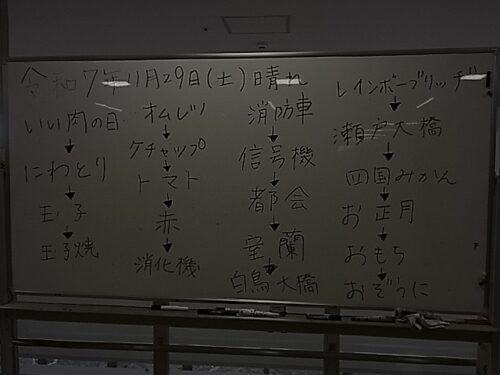 令和7年11月29日(土)晴れ
いい肉の日
↓
にわとり
↓
玉子
↓
玉子焼
オムレツ
↓
ケチャップ
↓
トマト
↓
赤
↓
消化機
消防車
↓
信号機
↓
都会
↓
室蘭
↓
白鳥大橋
レインボーブリッヂ
↓
瀬戸大橋
↓
四国みかん
↓
お正月
↓
おもち
↓
おぞうに